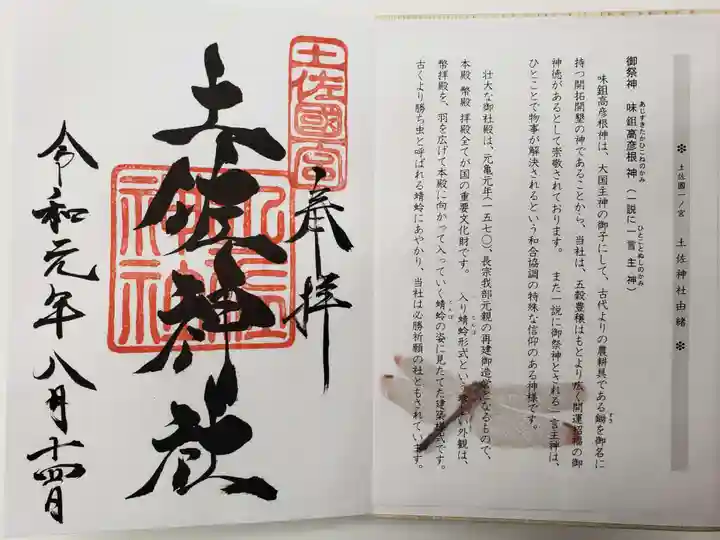 ✽ 土佐國一ノ宮 土佐神社由緒 ✽
御祭神 味鉏高彦根神(一説に一言主神)
あじすきたかひこねのかみ ひとことぬしのかみ
味鉏高彦根神は、大国主神の御子にして、古代よりの農耕具である鋤を御名に
すき
持つ開拓開墾の神であることから、当社は、五穀豊穣はもとより広く開運招福の御
神徳があるとして崇敬されております。 また一説に御祭神とされる一言主神は、
ひとことで物事が解決されるという和合協調の特殊な信仰のある神様です。
壮大な御社殿は、元亀元年(一五七〇)、長宗我部元親の再建御造営となるもので、
本殿 幣殿 拝殿全てが国の重要文化財です。 入り蜻蛉形式という珍しい外観は、
とんぼ
幣拝殿を、羽を広げて本殿に向かって入っていく蜻蛉の姿に見たてた建築様式です。
とんぼ
古くより勝ち虫と呼ばれる蜻蛉にあやかり、当社は必勝祈願の社ともされています。
奉拝
土佐國
土佐神社
土佐神社
令和元年八月十四日